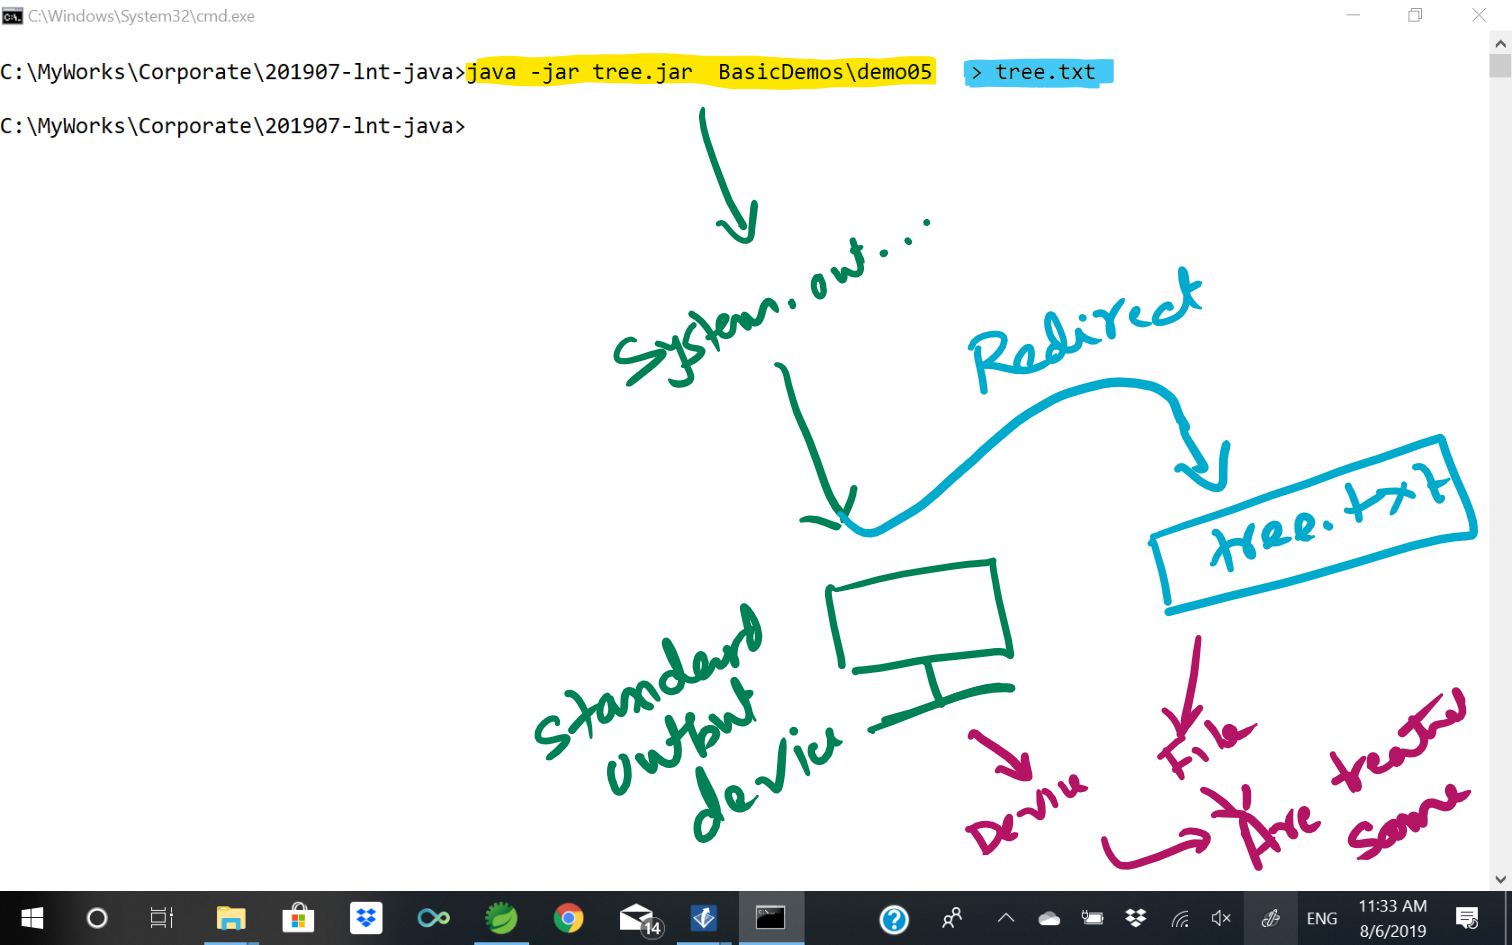 C:\Windows\System32\cmd.exe
C:\MyWorks\Corporate\201907-lnt-java>java -jar tree.jar  BasicDemos\demo05  > tree.txt
C:\MyWorks\Corporate\201907-lnt-java>
System.out...
Redirect
tree.txt
standard
output
device
Device
File
Are treated
same
14
ENG
11:33 AM
8/6/2019